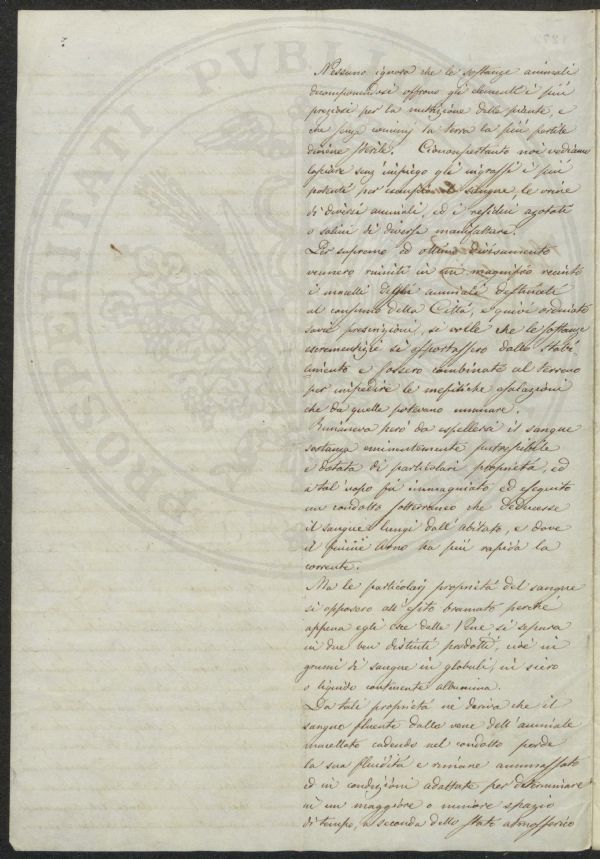 Nessuno ignora che le sostanze animali
decomponendosi offrono gli elementi i più
preziosi per la nutrizione delle piante, e
che senza concimi la terra la più fertile
diviene sterile. Ciononpertanto noi vediamo
lasciare senz'impiego gli ingrassi i più
potenti per esempio il sangue, le orine
di diversi animali, ed i residui azotati
o salini di diverse manifatture.
Per supremo ed ottimo divisamento
vennero riuniti in un magnifico recinto
i macelli degli animali destinati
al consumo della Città, e quivi ordinate
savie prescrizioni, si volle che le sostanze
escrementizie si asportassero dallo Stabi
limento e fossero combinate al terreno
per impedire le mefitiche esalazioni
che da quelle potevano emanare.
Rimaneva però da espellersi il sangue
sostanza eminentemente putrescibile
e dotata di particolari proprietà, ed
a tal uopo fu immaginato ed eseguito
un condotto sotterraneo che deducesse
il sangue lungi dall'abitato, e dove
il fiume Arno ha più rapida la
corrente.
Ma le particolari proprietà del sangue
si opposero all'esito bramato perché
appena egli esce dalle Vene si separa
in due ben distinti prodotti, cioè in
grumi di sangue in globuli, in siero
o liquido contenente albumina.
Da tali proprietà ne deriva che il
sangue fluente dalle vene dell'animale
macellato cadendo nel condotto perde
la sua fluidità e rimane ammassato
ed in condizioni adattate per determinare
in un maggiore o minore spazio
di tempo, a seconda dello stato atmosferico
PVBLI